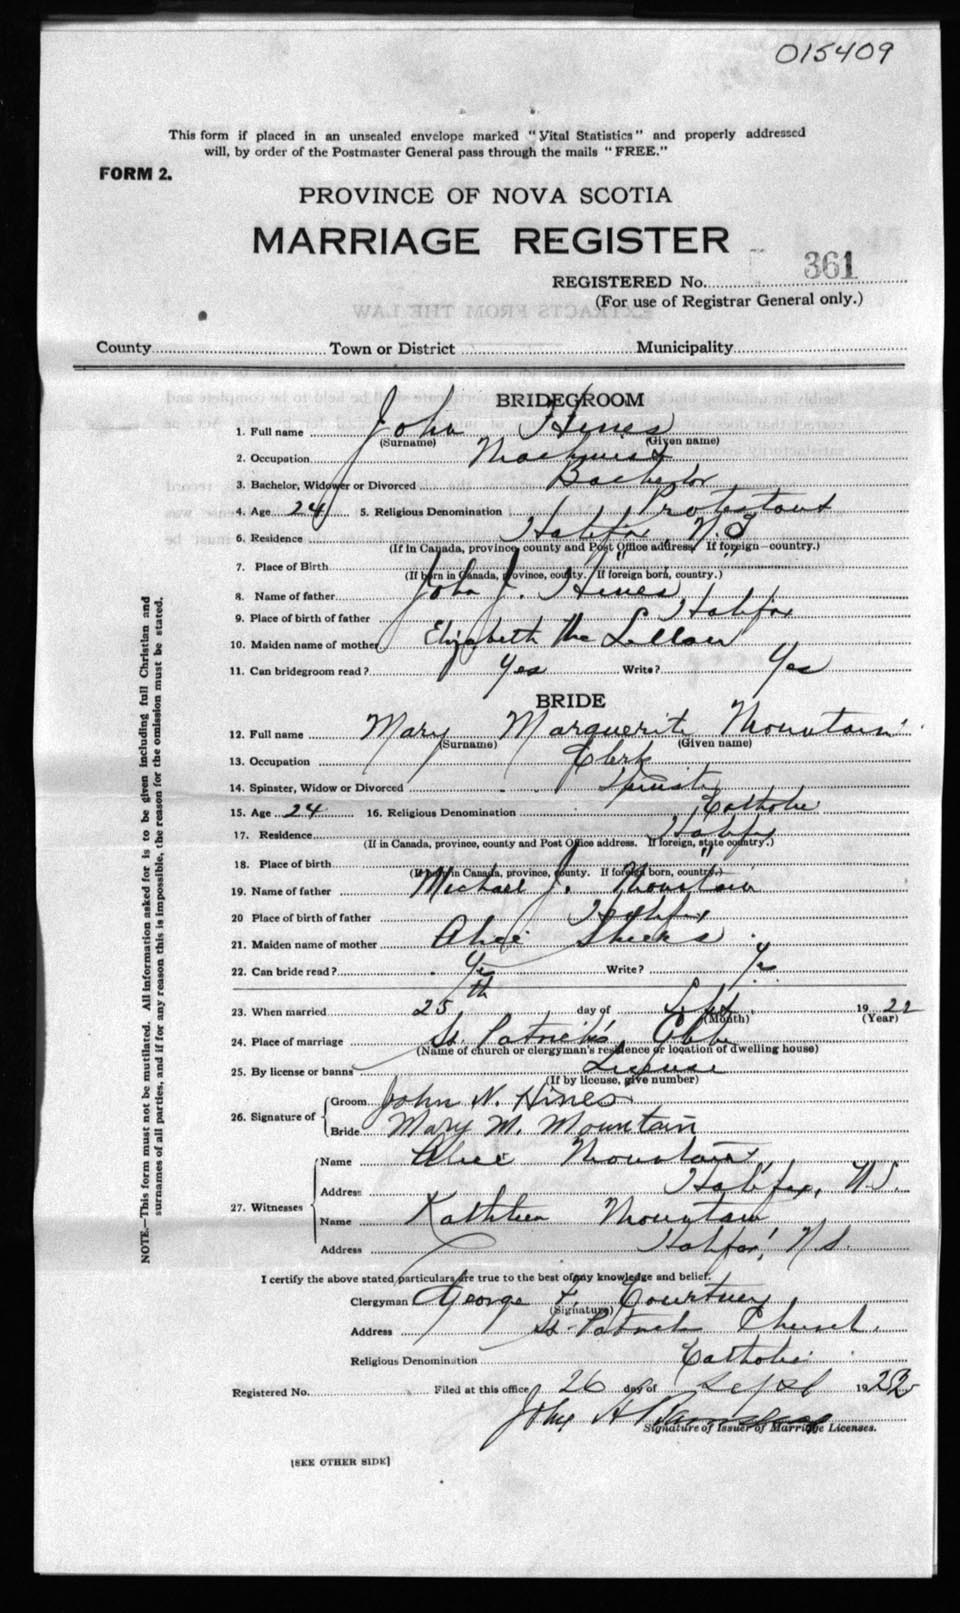 015409
This form if placed in an unsealed envelope marked "Vital Statistics" and properly addressed
will, by order of the Postmaster General pass through the mails "FREE."
FORM 2.
PROVINCE OF NOVA SCOTIA
MARRIAGE REGISTER
REGISTERED No. 361
(For use of Registrar General only.)
County Town or District Municipality
BRIDEGROOM
1. Full name John Hines
(Surname) (Given name)
2. Occupation Machinist
3. Bachelor, Widower or Divorced Bachelor
4. Age 24 5. Religious Denomination Protestant
6. Residence Halifax N.S
(If in Canada, province, county and Post Office address. If foreign—country.)
7. Place of Birth " "
(If born in Canada, province, county. If foreign born, country.)
8. Name of father John J. Hines
9. Place of birth of father Halifax
10. Maiden name of mother Elizabeth Mc Lellan
11. Can bridegroom read? Yes Write? Yes
BRIDE
12. Full name Mary Marguerite Mountain
(Surname) (Given name)
13. Occupation Clerk
14. Spinster, Widow or Divorced Spinster
15. Age 24 16. Religious Denomination Catholic
17. Residence Halifax
(If in Canada, province, county and Post Office address. If foreign, state country.)
18. Place of birth "
(If born in Canada, province, county. If foreign born, country.)
19. Name of father Michael J. Mountain
20 Place of birth of father Halifax
21. Maiden name of mother Alice
22. Can bride read? Yes Write? Yes
23. When married 25th day of Sept 1922
(Month) (Year)
24. Place of marriage St. Patrick's
(Name of church or clergyman's residence or location of dwelling house)
25. By license or banns License
(If by license, give number)
26. Signature of
Groom John N. Hines
Bride Mary M. Mountain
27. Witnesses
Name Alice Mountain
Address Halifax, N.S.
Name Kathleen Mountain
Address Halifax, N.S.
I certify the above stated particulars are true to the best of my knowledge and belief.
Clergyman George F. Courtney
(Signature)
Address St. Patricks Church.
Religious Denomination Catholic
Registered No. Filed at this office 26 day of Sept 192
John H
Signature of Issuer of Marriage Licenses.
[SEE OTHER SIDE]
NOTE.—This form must not be mutilated. All information asked for is to be given including full Christian and
surnames of all parties, and if for any reason this is impossible, the reason for the omission must be stated.